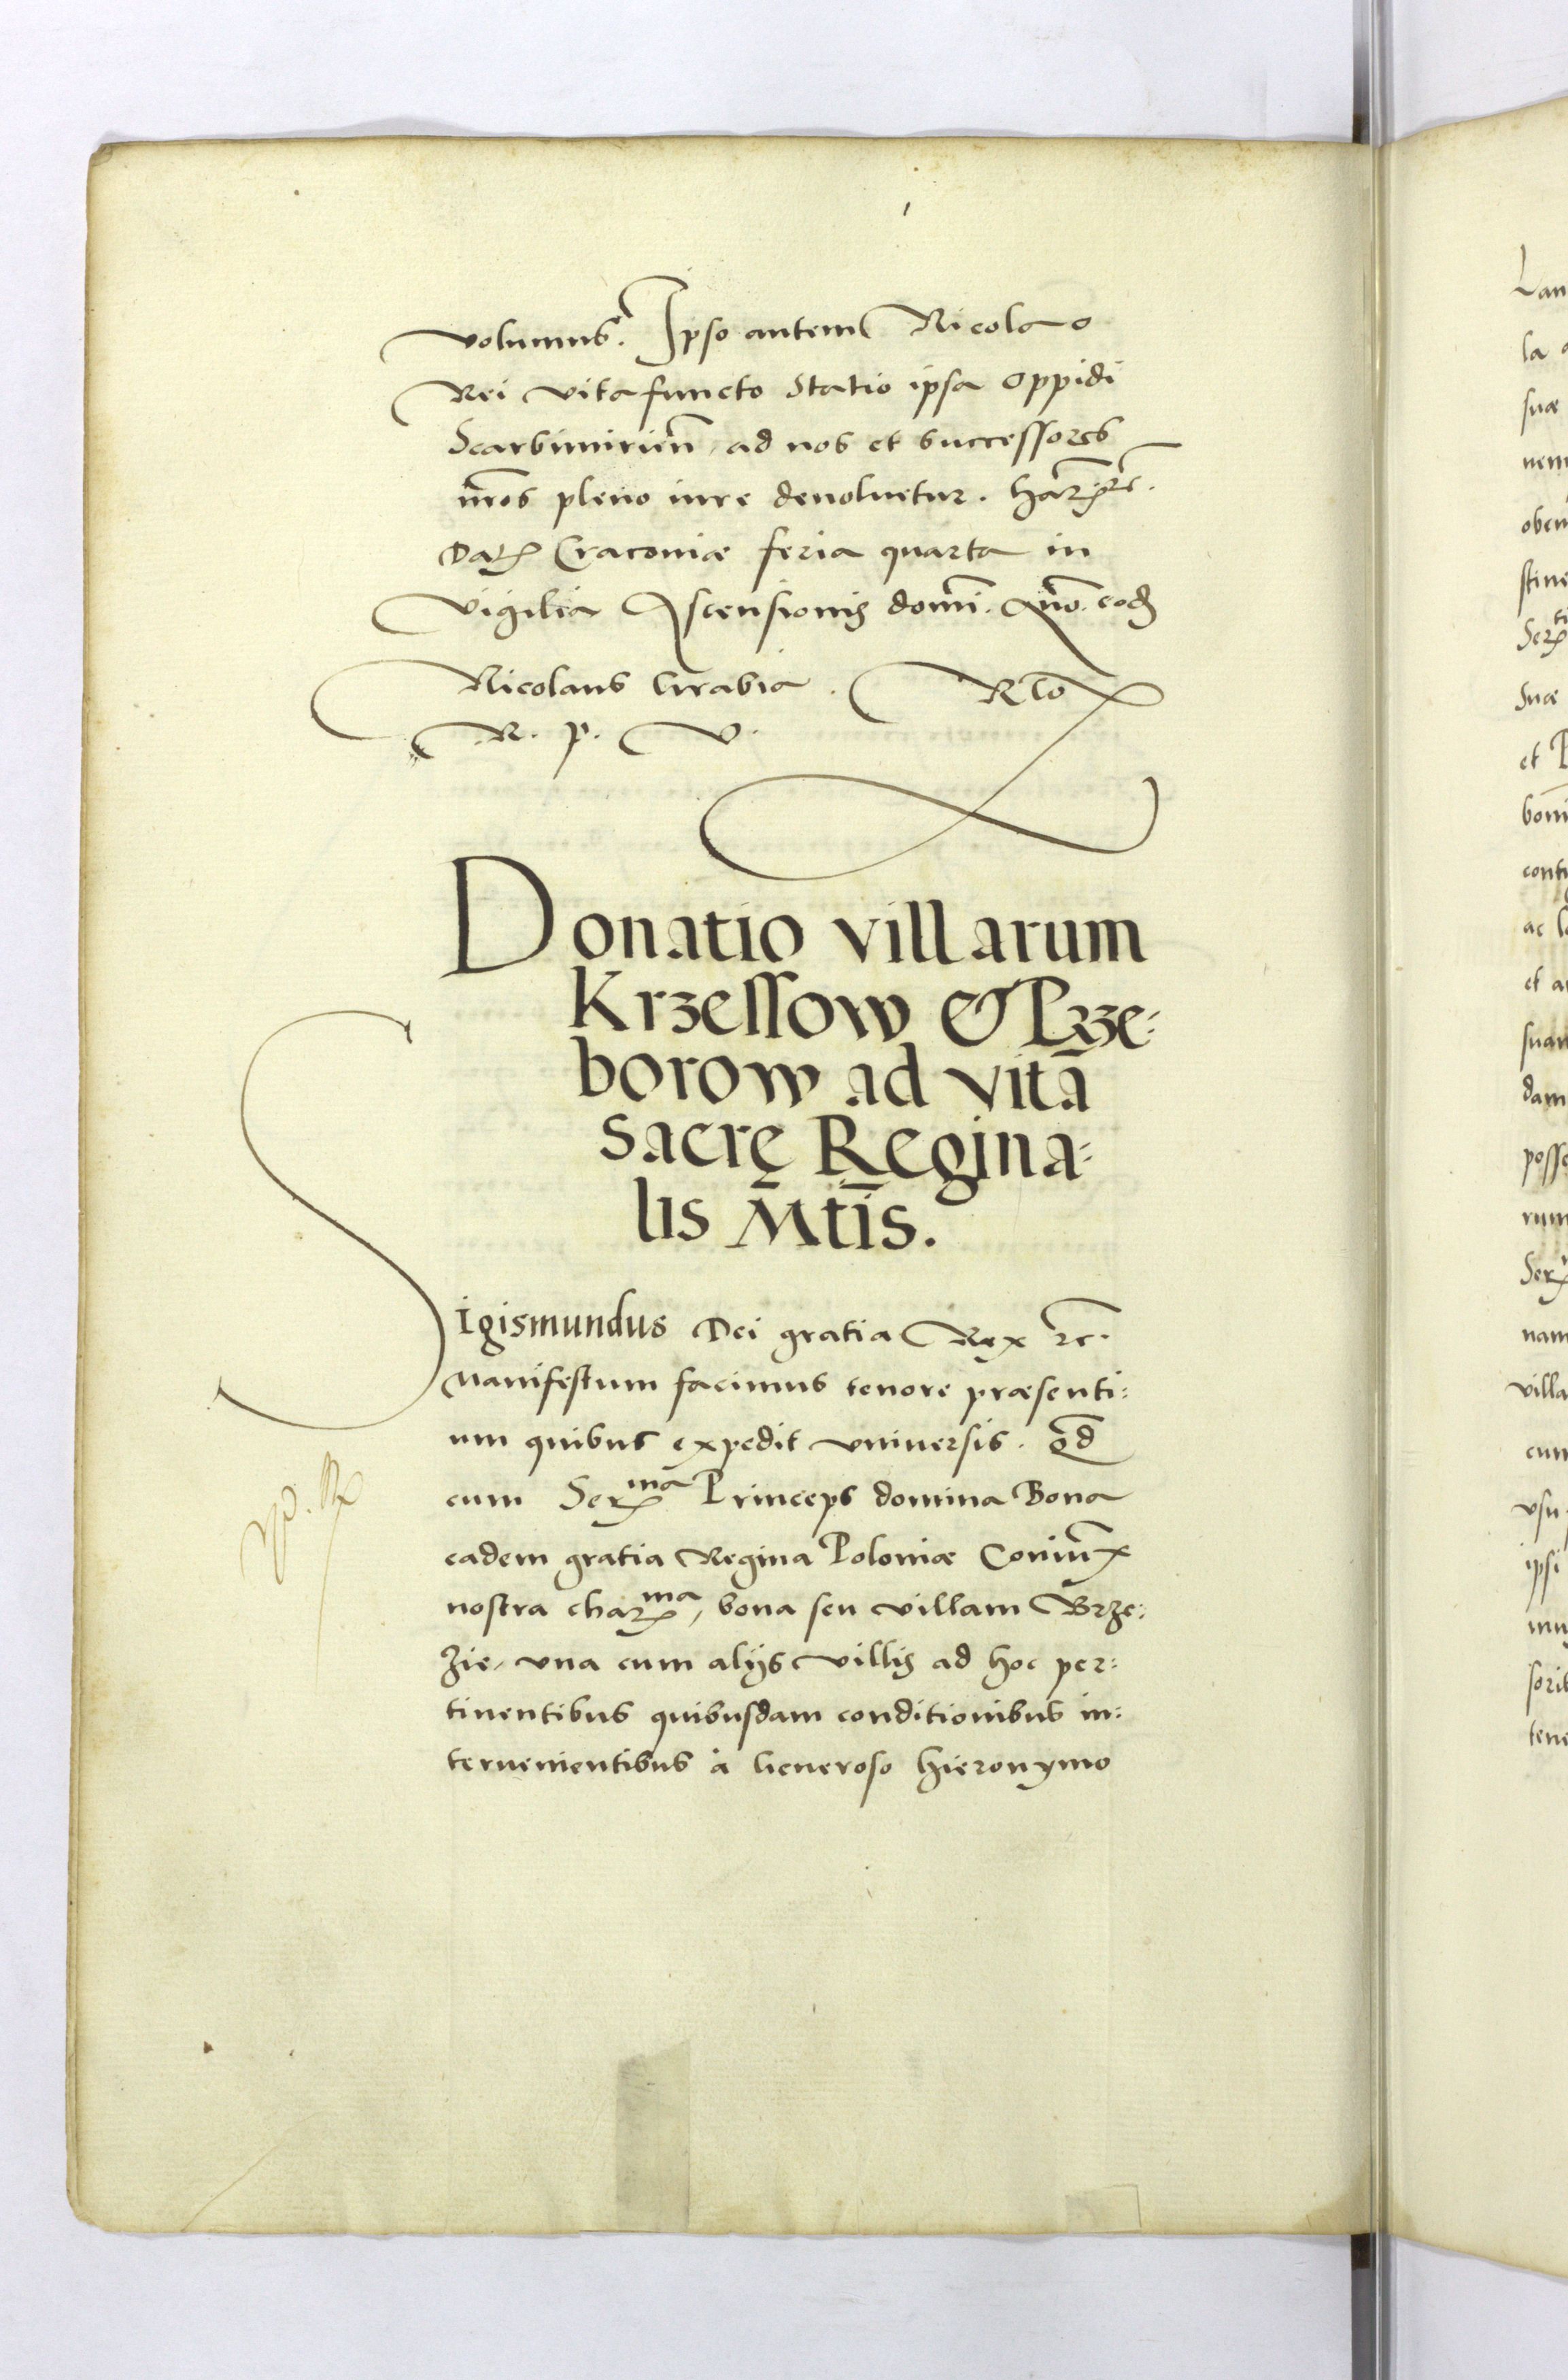 volumus. Ipso autem Nicolao
Rei vita functo Statio ipsa oppidi
Scarbimirien̄, ad nos et successores
nr̄os pleno iure deuoluetur. Har̄ ꝛc.
Datꝫ Cracouiæ feria quarta in
Vigilia Ascensionis domi. Año. eodꝫ
Nicolaus Grabia. Rlo
R. p. V.
Donatio villarum
Krzessow & Prze:
borow ad vitā
sacrę Regina:
lis M̄tīs.
Sigismundus Dei gratia Rex ꝛc.
Manifestum facimus tenore præsenti:
um quibus expedit vniuersis. Qd̄
cum Serma Princeps domina Bona
eadem gratia Regina Poloniæ Coniūx
nostra charma, bona seu villam Brze:
zie, vna cum alijs villis ad hoc per:
tinentibus quibusdam conditionibus in:
teruenientibus à Generoso Hieronymo
Lan
la
suæ
nem
oben
stine
Serti
Suæ
et P
boni
conti
ac l
et a
suar
dam
posse
rum
Ser
nam
villa
cum
vsu
ipsi
mu
sorib
tene